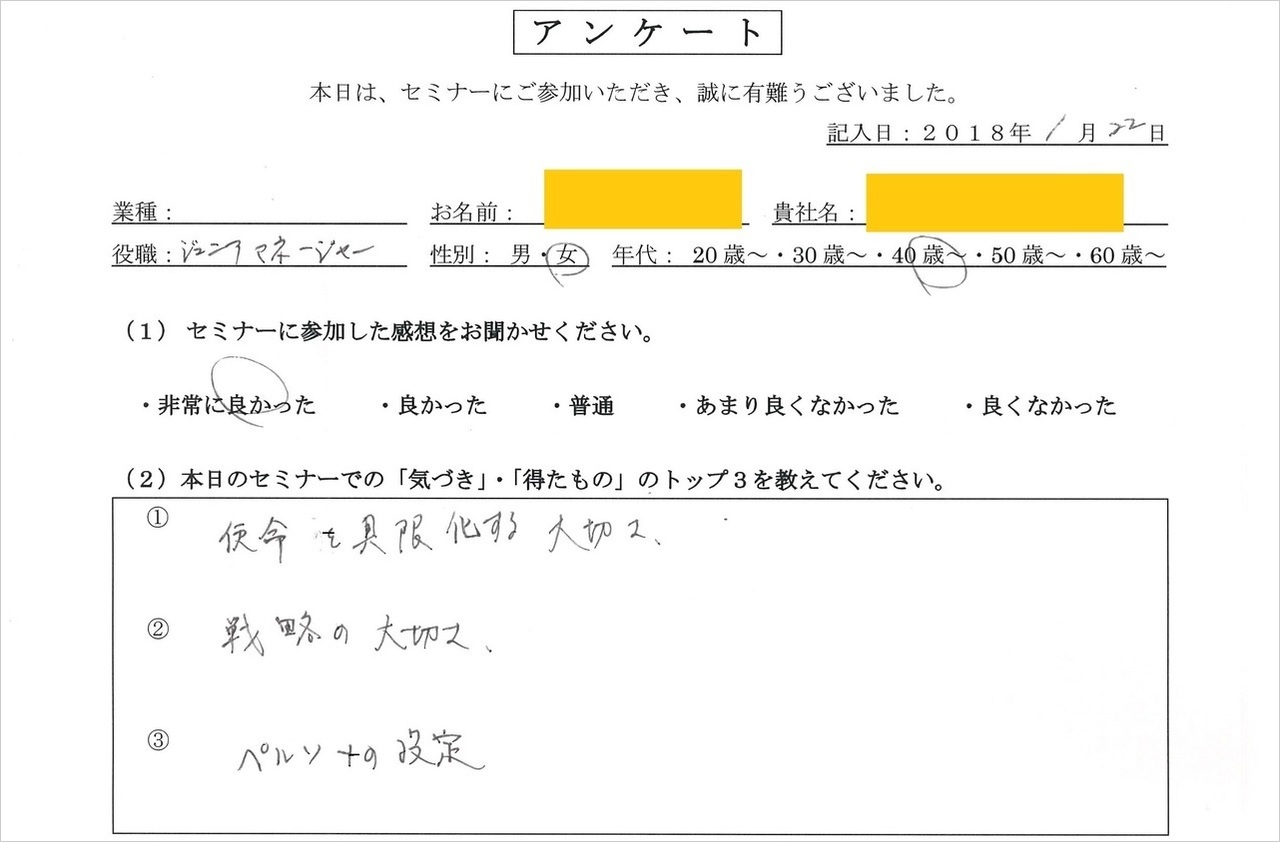 アンケート
本日は、セミナーにご参加いただき、誠に有難うございました。
記入日：２０１８年 1 月 22 日
業種： お名前： 貴社名：
役職：ジュニアマネージャー 性別： 男・女 年代： 20 歳～・30 歳～・40 歳～・50 歳～・60 歳～
（１） セミナーに参加した感想をお聞かせください。
・非常に良かった ・良かった ・普通 ・あまり良くなかった ・良くなかった
（２）本日のセミナーでの「気づき」・「得たもの」のトップ３を教えてください。
① 使命を具限化する大切さ、
② 戦略の大切さ、
③ ペルソナの設定